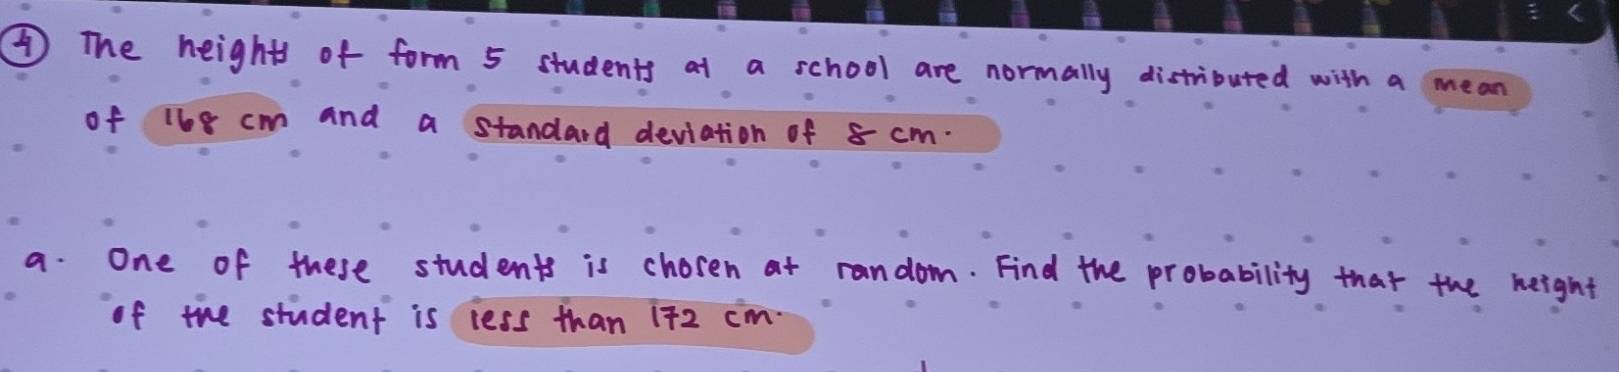 ④ The heights of form 5 students at a school are normally distributed with a mean
of 168 cm and a standard deviation of 8 cm.
a. One of these students is chosen at random. Find the probability that the height
of the student is less than 172 cm.